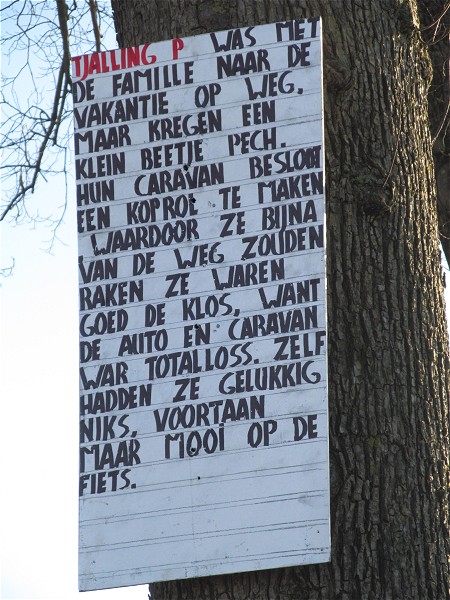 TJALLING P WAS MET
DE FAMILLE NAAR DE
VAKANTIE OP WEG,
MAAR KREGEN EEN
KLEIN BEETJE PECH.
HUN CARAVAN BESLOOT
EEN KOPROL TE MAKEN
WAARDOOR ZE BIJNA
VAN DE WEG ZOUDEN
RAKEN ZE WAREN
GOED DE KLOS, WANT
DE AUTO EN CARAVAN
WAR TOTALLOSS. ZELF
HADDEN ZE GELUKKIG
NIKS, VOORTAAN
MAAR MOOI OP DE
FIETS.